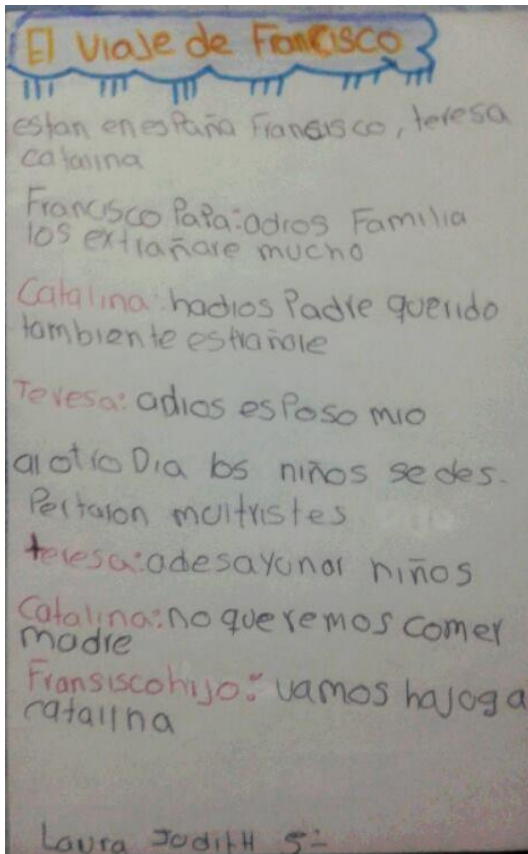 El Viaje de Francisco
estan en españa Fransisco, teresa
catalina
Francisco Papa: adios Familia
los extrañare mucho
Catalina: hadios Padre querido
tambiente estrañare
Teresa: adios esposo mio
al otro Dia los niños se des-
Pertaron muitristes
teresa: adesayunar niños
Catalina: no queremos comer
madre
Fransisco hijo: vamos hajoga
catalina
Laura Judith 5-